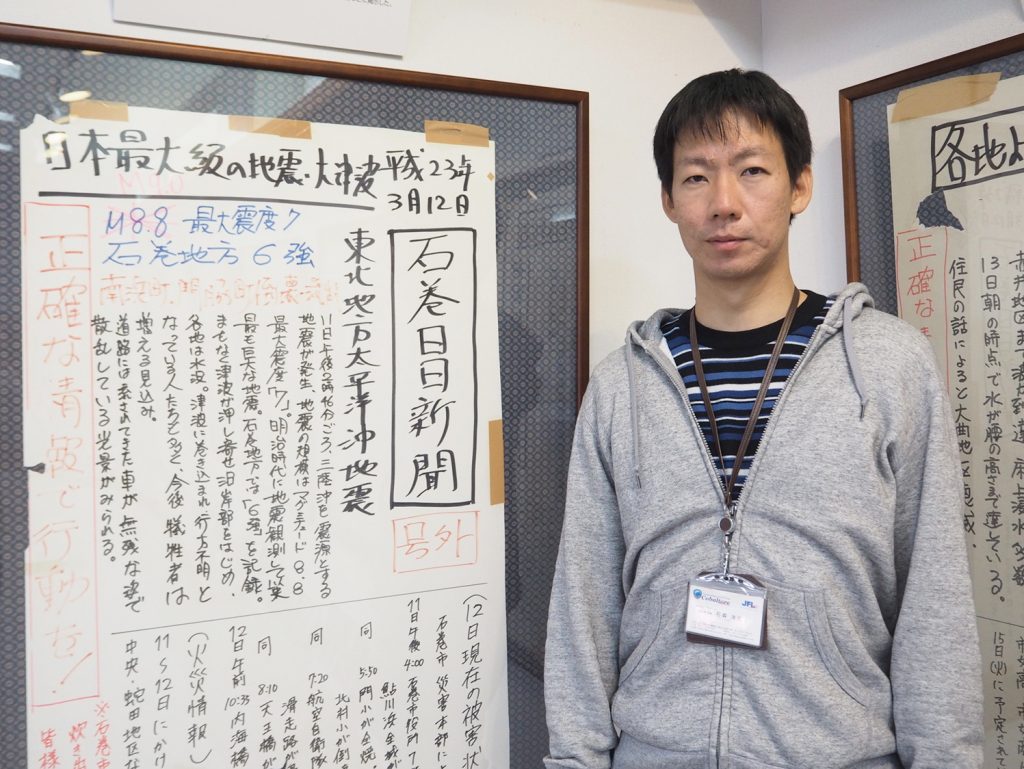 日本最大級の地震・大津波
平成23年
3月12日
M9.0
M8.8 最大震度7
石巻地方6強
石巻日日新聞
号外
東北地方太平洋沖地震
11日午後2時46分ごろ、三陸沖を震源とする
地震が発生、地震の規模はマグニチュード8.8
最大震度「7」。明治時代に地震観測して以来
最も巨大な地震。石巻地方では「6強」を記録。
まもなく津波が押し寄せ沿岸部をはじめ、
各地は水没。津波に巻き込まれ行方不明と
なっている人たちも多く、今後犠牲者は
増える見込み。
道路には流されてきた車が無残な姿で
散乱している光景がみられる。
正確な情報で行動を!
(12日現在の被害状
石巻市災害本部によ
11日午後4:00 石巻市役所
同 5:50 門小が全焼
北村小が倒
同 7:20 航空自衛隊
滑走路が
同 8:10 天王橋が
12日午前10:35 内海橋
(火災情報)
11~12日にかけ
中央・蛇田地区な
※石巻市
炊き出
皆様
各地
正確な
13日朝の時点で水が腰の高さまで達している。
住民の話によると大曲地区壊滅。
15日(火)に予定されて
Cobaltore
JFL